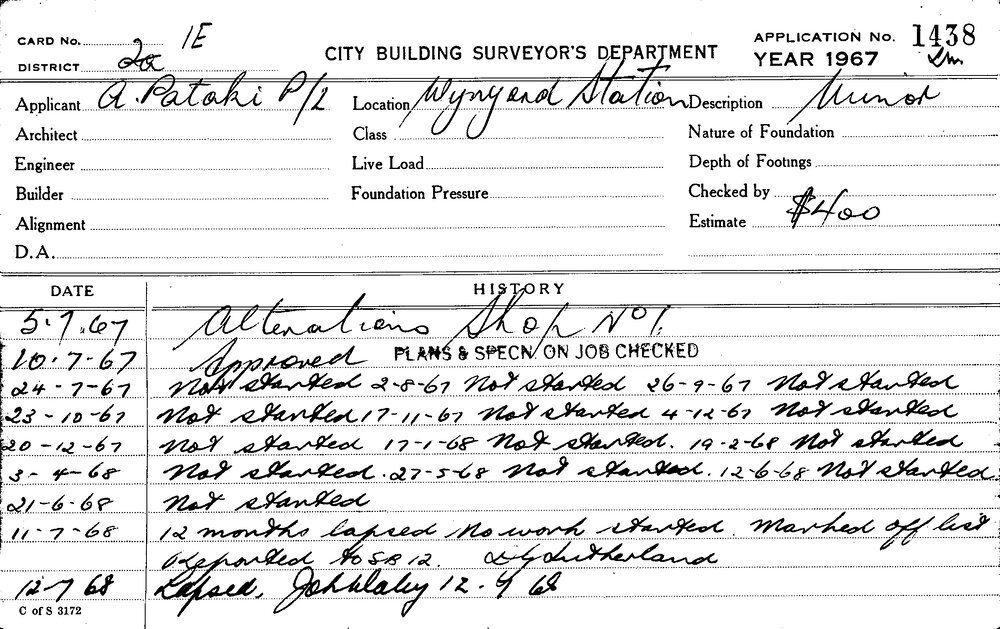 CARD No. 1E
DISTRICT 2a
CITY BUILDING SURVEYOR'S DEPARTMENT
APPLICATION No. 1438
YEAR 1967
Applicant A. Pataki P/L Location Wynyard Station Description Minor
Architect Class Nature of Foundation
Engineer Live Load Depth of Footings
Builder Foundation Pressure Checked by
Alignment Estimate $400
D.A.
DATE HISTORY
5.7.67 Alterations Shop No 1.
10-7-67 Approved PLANS & SPECN. ON JOB CHECKED
24-7-67 Not started 2-8-67 Not started 26-9-67 Not started
23-10-67 Not started 17-11-67 Not started 4-12-67 Not started
20-12-67 Not started 17-1-68 Not started. 19-2-68 Not started
3-4-68 Not started. 27-5-68 Not started. 12-6-68 Not started.
21-6-68 Not started
11-7-68 12 months lapsed no work started. Marked off list
reported to SB 12. Sutherland
12-7 68 Lapsed. 12.7 68
C of S 3172